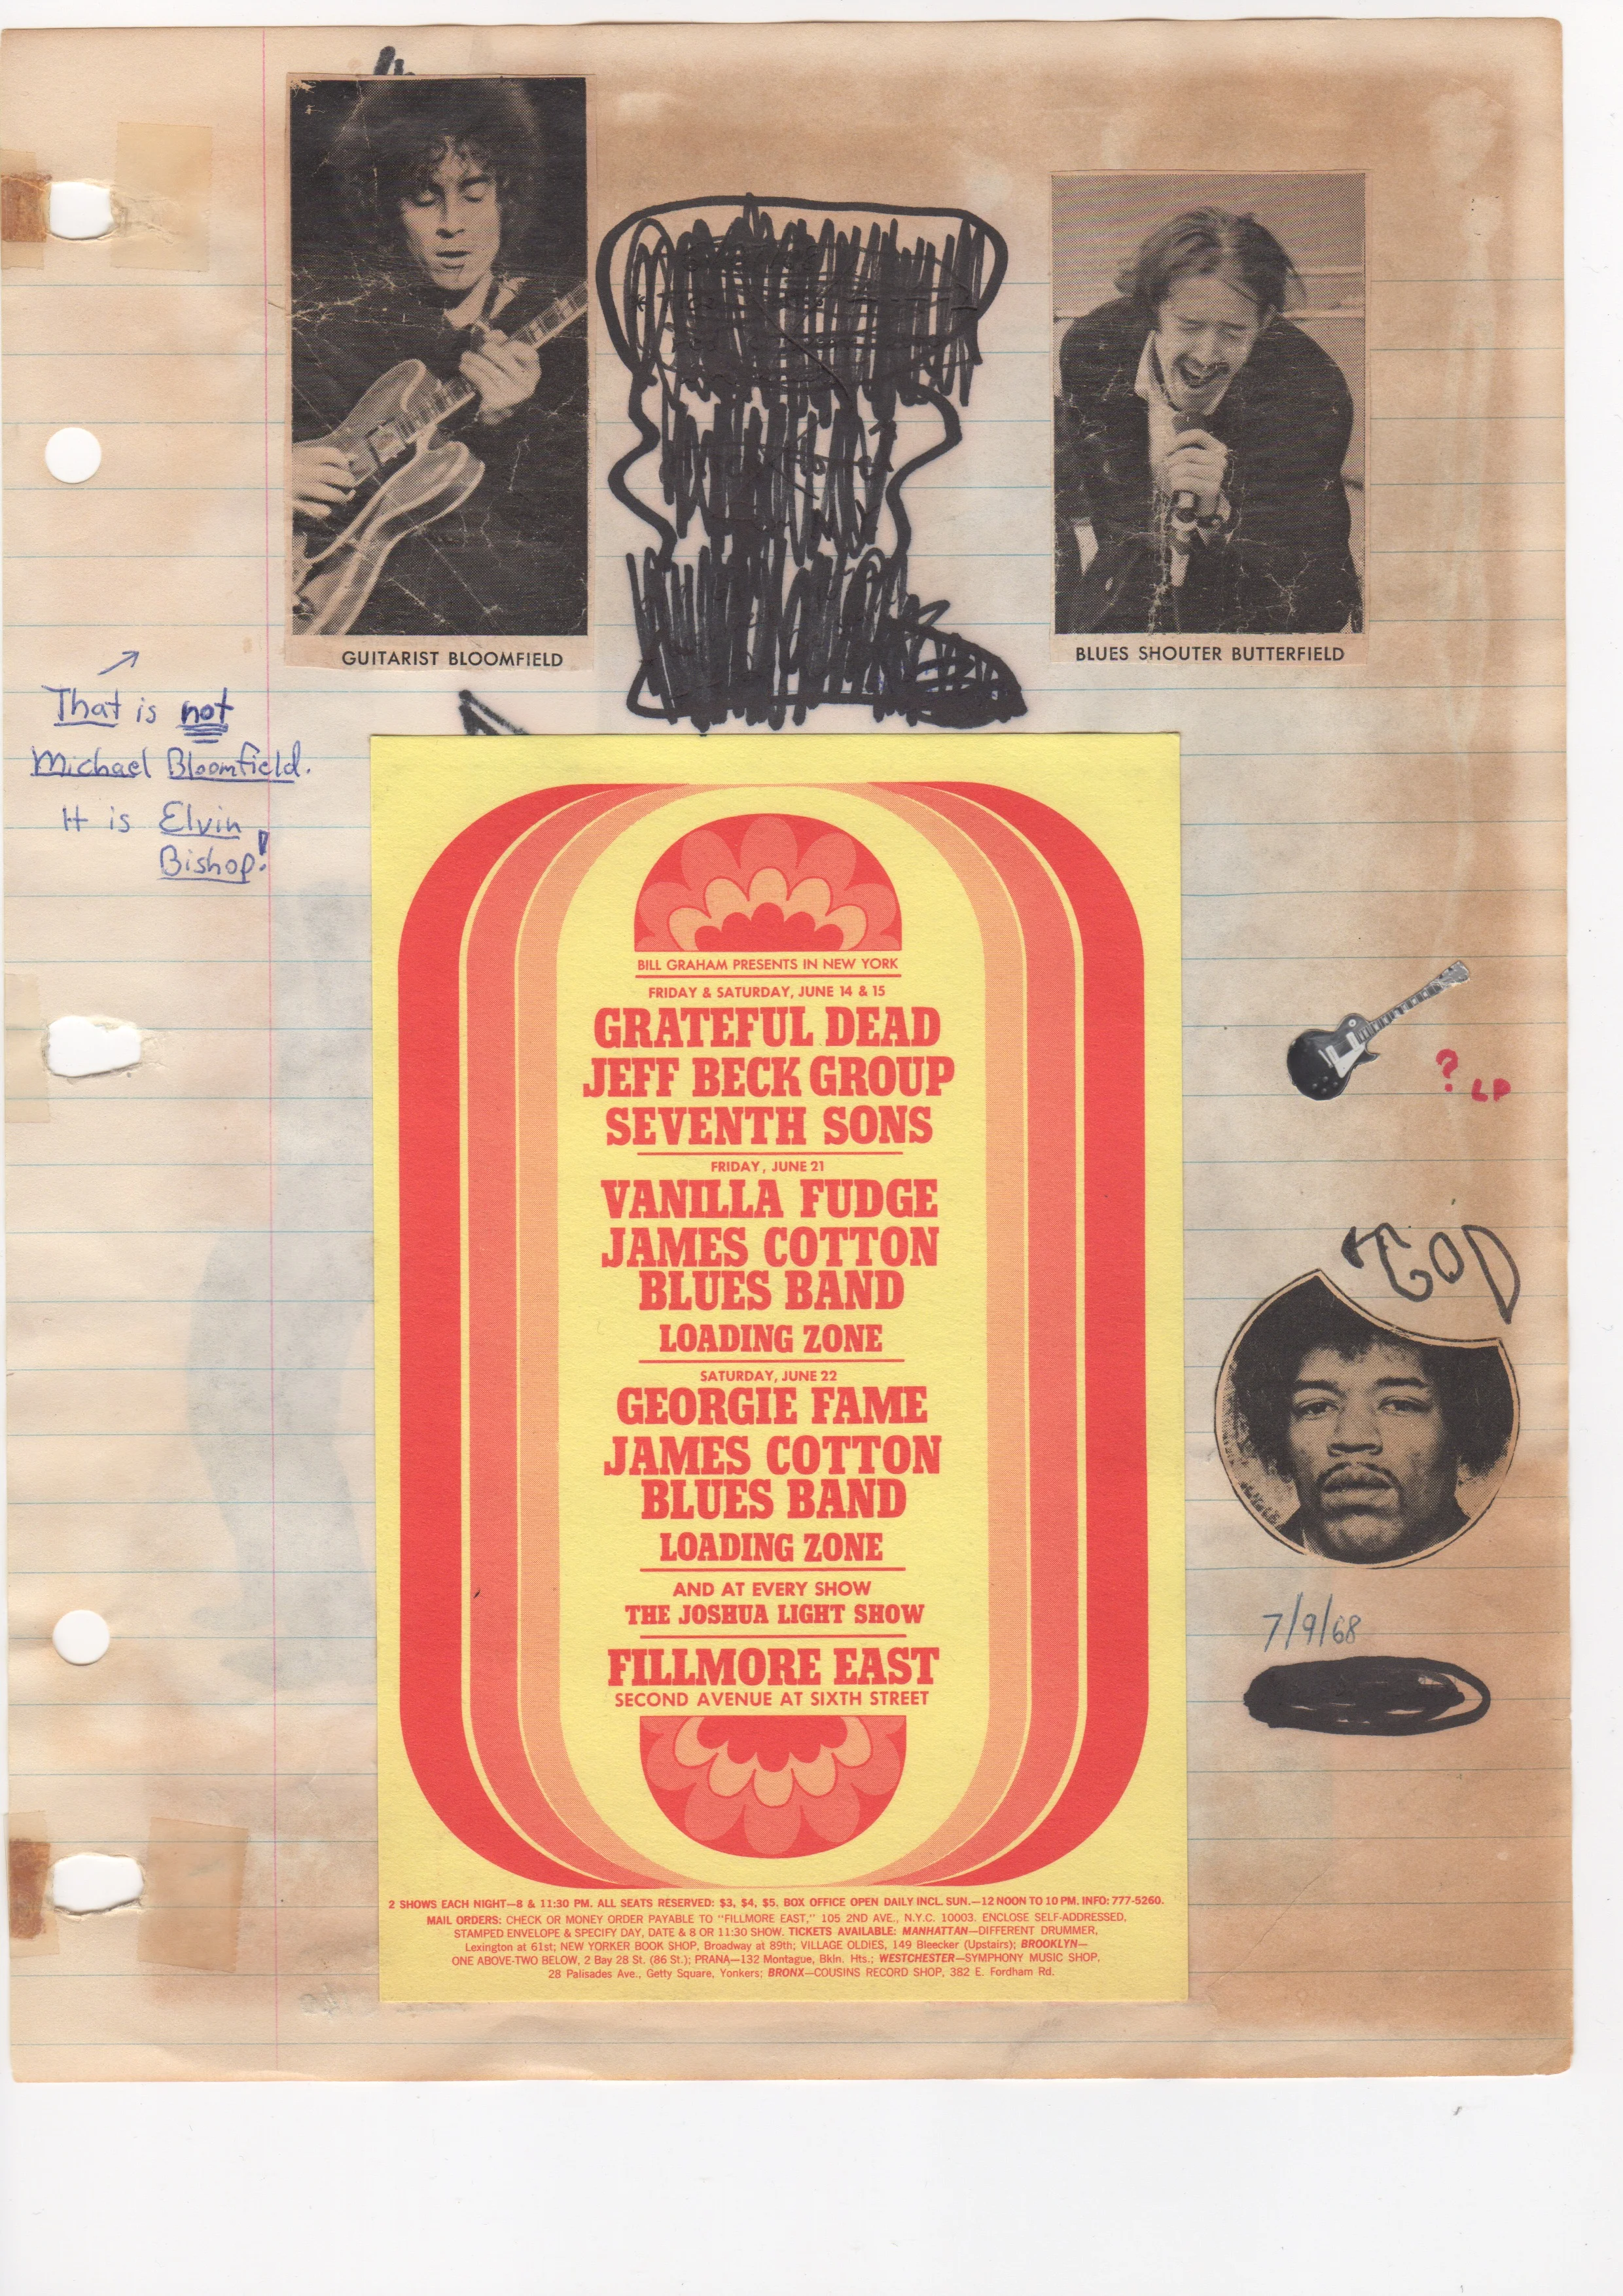 GUITARIST BLOOMFIELD
BLUES SHOUTER BUTTERFIELD
That is not
Michael Bloomfield.
It is Elvin
Bishop!
BILL GRAHAM PRESENTS IN NEW YORK
FRIDAY & SATURDAY, JUNE 14 & 15
GRATEFUL DEAD
JEFF BECK GROUP
SEVENTH SONS
FRIDAY, JUNE 21
VANILLA FUDGE
JAMES COTTON
BLUES BAND
LOADING ZONE
SATURDAY, JUNE 22
GEORGIE FAME
JAMES COTTON
BLUES BAND
LOADING ZONE
AND AT EVERY SHOW
THE JOSHUA LIGHT SHOW
FILLMORE EAST
SECOND AVENUE AT SIXTH STREET
2 SHOWS EACH NIGHT—8 & 11:30 PM. ALL SEATS RESERVED: $3, $4, $5. BOX OFFICE OPEN DAILY INCL. SUN.—12 NOON TO 10 PM. INFO: 777-5260.
MAIL ORDERS: CHECK OR MONEY ORDER PAYABLE TO "FILLMORE EAST," 105 2ND AVE., N.Y.C. 10003. ENCLOSE SELF-ADDRESSED,
STAMPED ENVELOPE & SPECIFY DAY, DATE & 8 OR 11:30 SHOW. TICKETS AVAILABLE: MANHATTAN—DIFFERENT DRUMMER,
Lexington at 61st; NEW YORKER BOOK SHOP, Broadway at 89th; VILLAGE OLDIES, 149 Bleecker (Upstairs); BROOKLYN—
ONE ABOVE-TWO BELOW, 2 Bay 28 St. (86 St.); PRANA—132 Montague, Bkln. Hts.; WESTCHESTER—SYMPHONY MUSIC SHOP,
28 Palisades Ave., Getty Square, Yonkers; BRONX—COUSINS RECORD SHOP, 382 E. Fordham Rd.
? LP
GOD
7/9/68